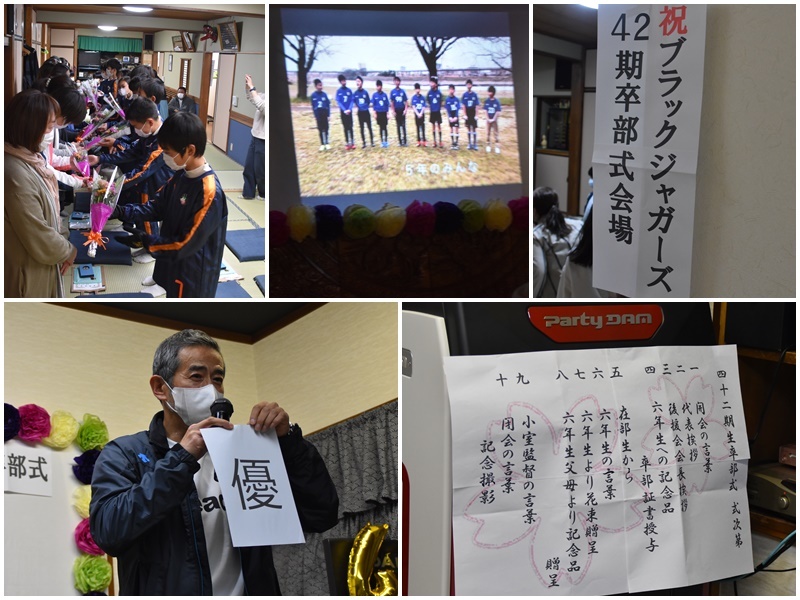 5年のみんな
祝ブラックジャガーズ
42期卒部式会場
部式
優
Party DAM
四十二期生卒部式 式次第
一 開会の言葉
二 代表挨拶
三 後援会会長挨拶
四 六年生への記念品
卒部証書授与
五 在部生から
六 六年生の言葉
七 六年生より花束贈呈
八 六年生父母より記念品
贈呈
九 小室監督の言葉
十 閉会の言葉
記念撮影